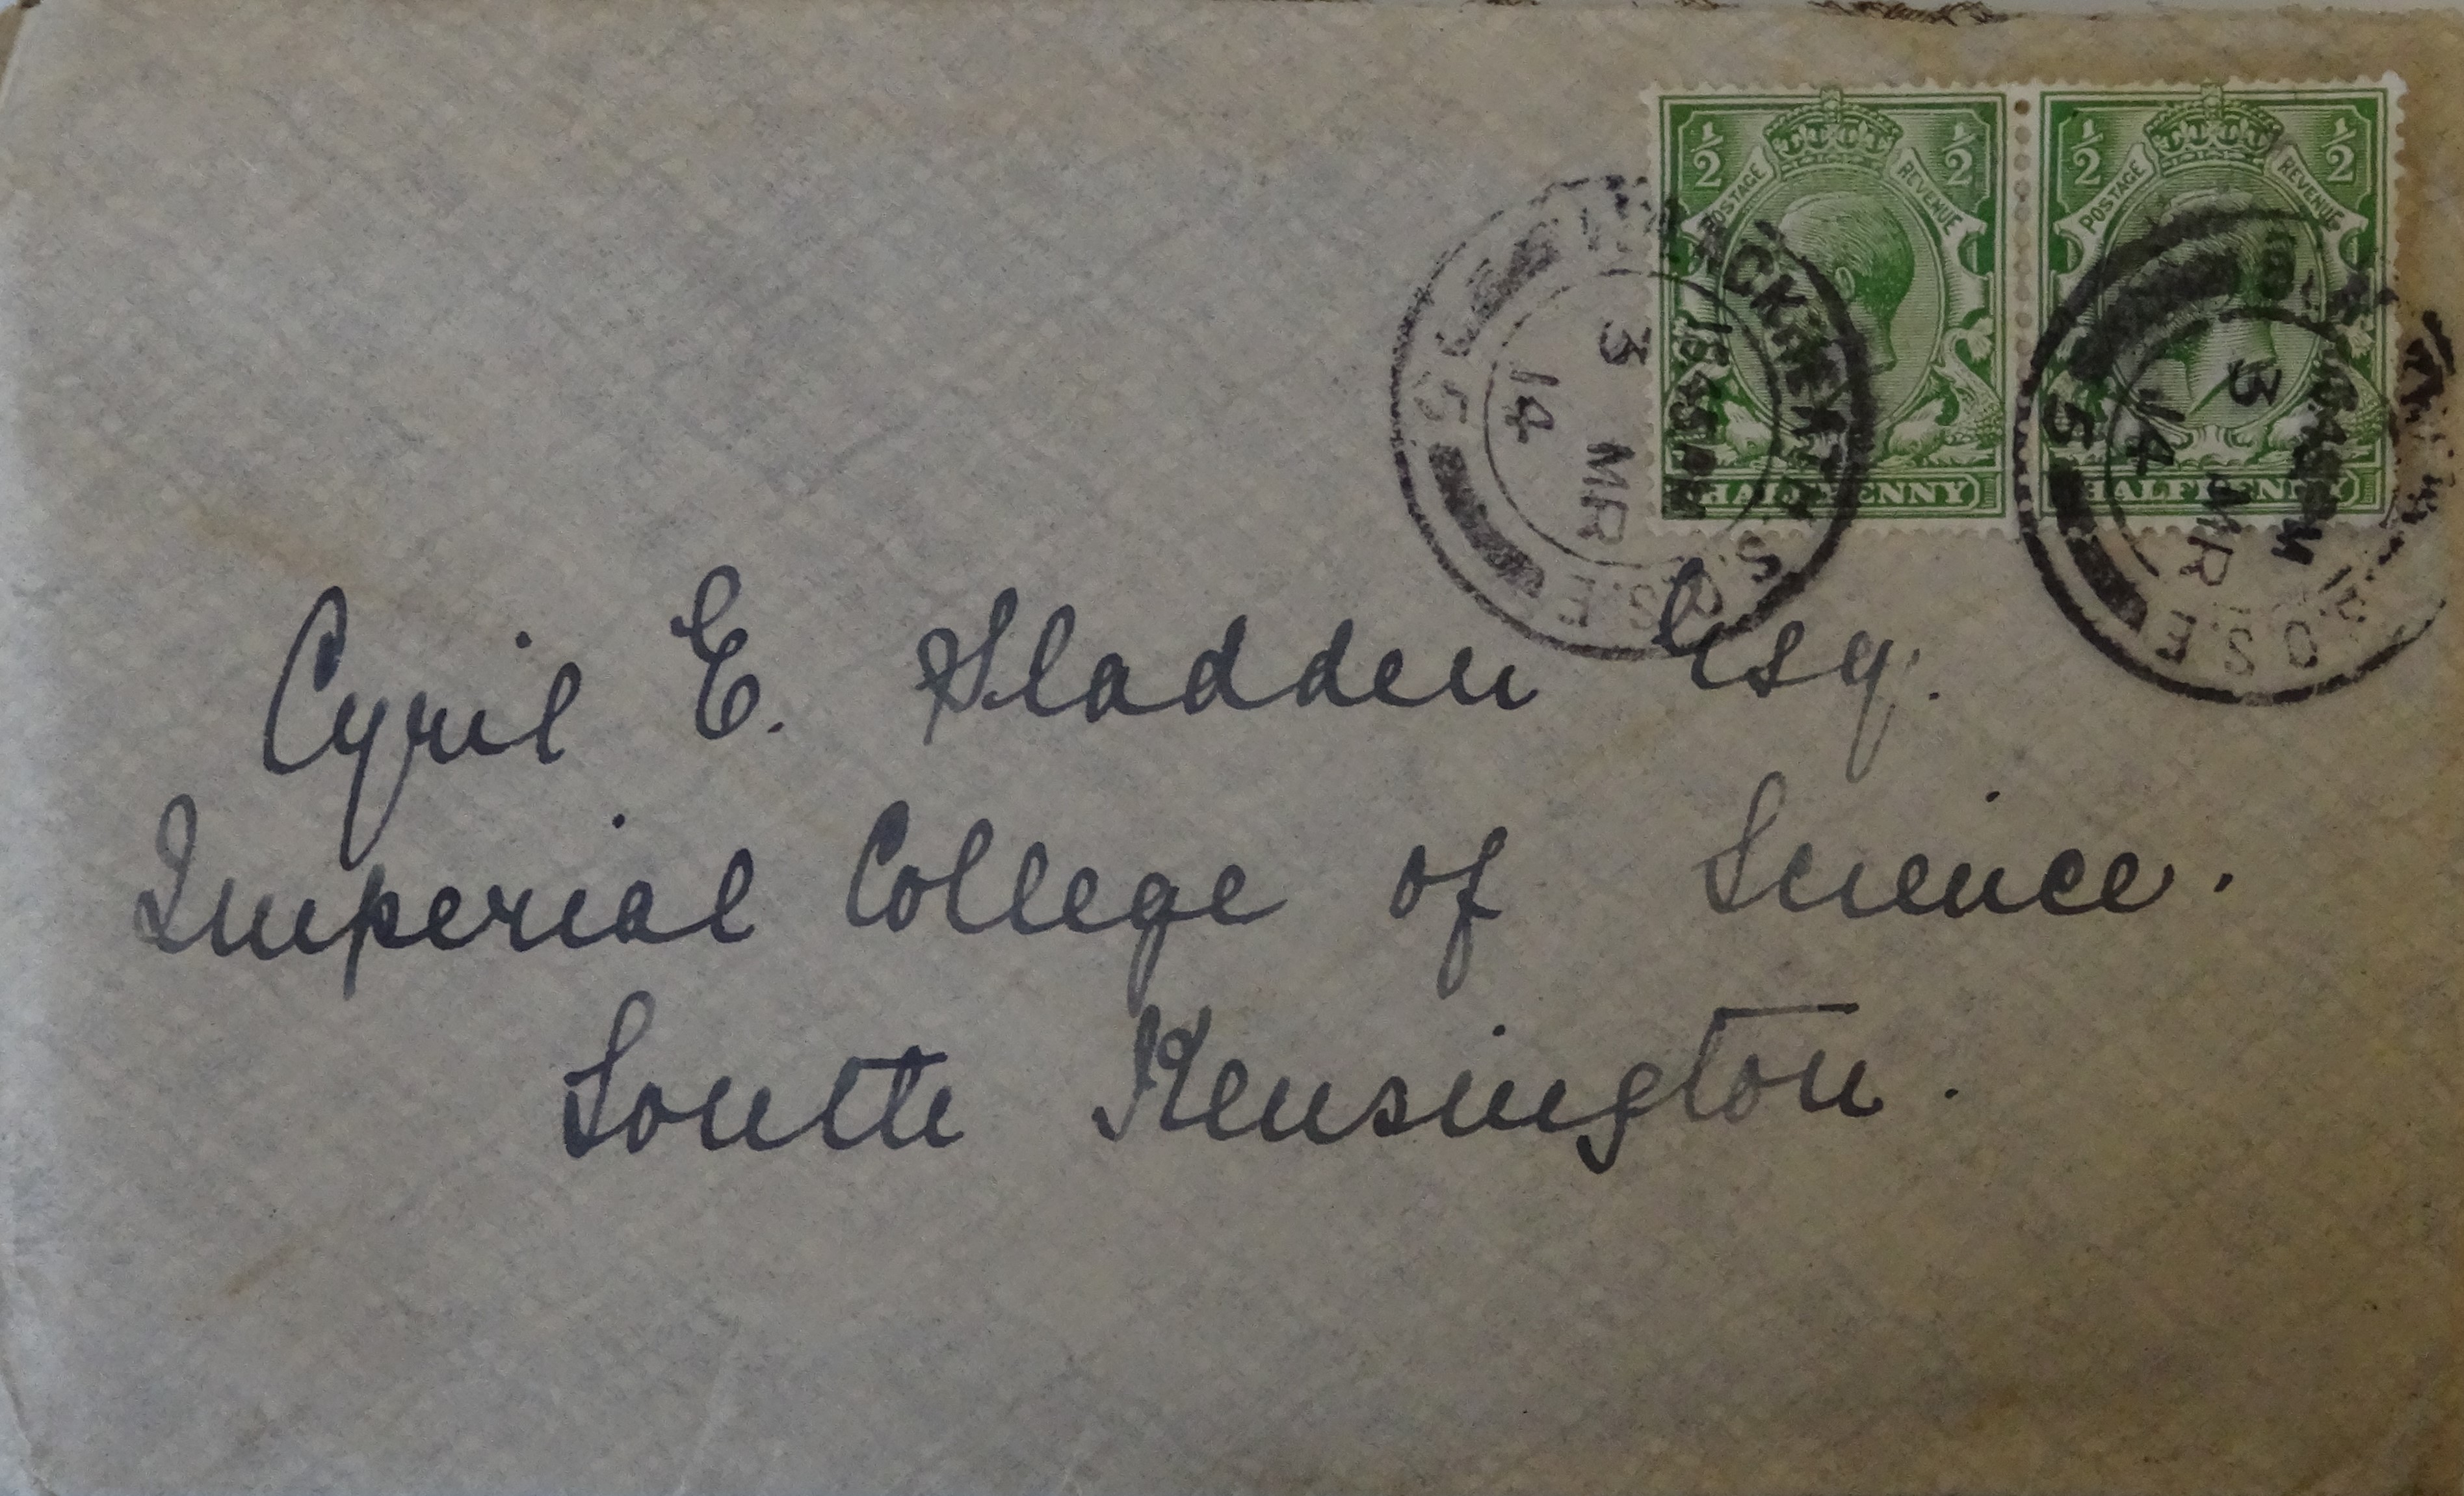 ½ POSTAGE REVENUE ½
HALFPENNY
½ POSTAGE REVENUE ½
HALFPENNY
BLACKHEATH S.O.S.E.
3 MR
14
S.O.S.E.
3 MR
14
5
Cyril E. Sladden Esq.
Imperial College of Science.
South Kensington.